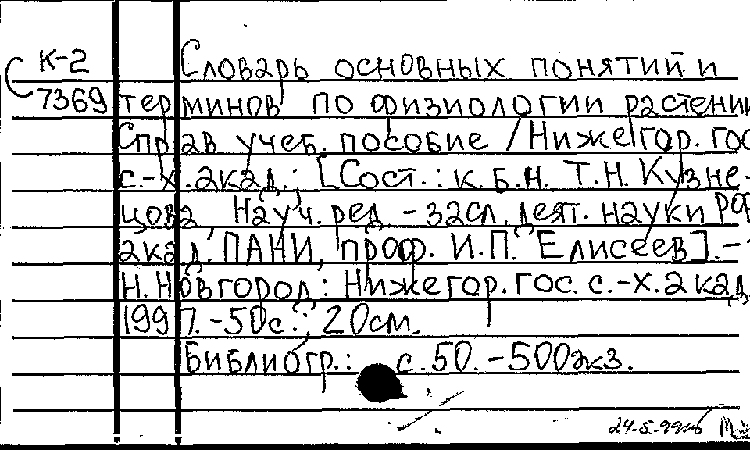 К-2 Словарь основных понятий и
7369 терминов по физиологии растений
Справ учеб. пособие / Нижегор. гос
с.-х. акад.; [Сост.: к.б.н. Т.Н. Кузне-
цова, Науч. ред. - засл. деят. науки РФ,
акад. ПАНИ, проф. И.П. Елисеев]. -
Н. Новгород: Нижегор. гос. с.-х. акад.
1997. - 50с.; 20см.
Библиогр.: с. 50. - 500экз.
24-5-99